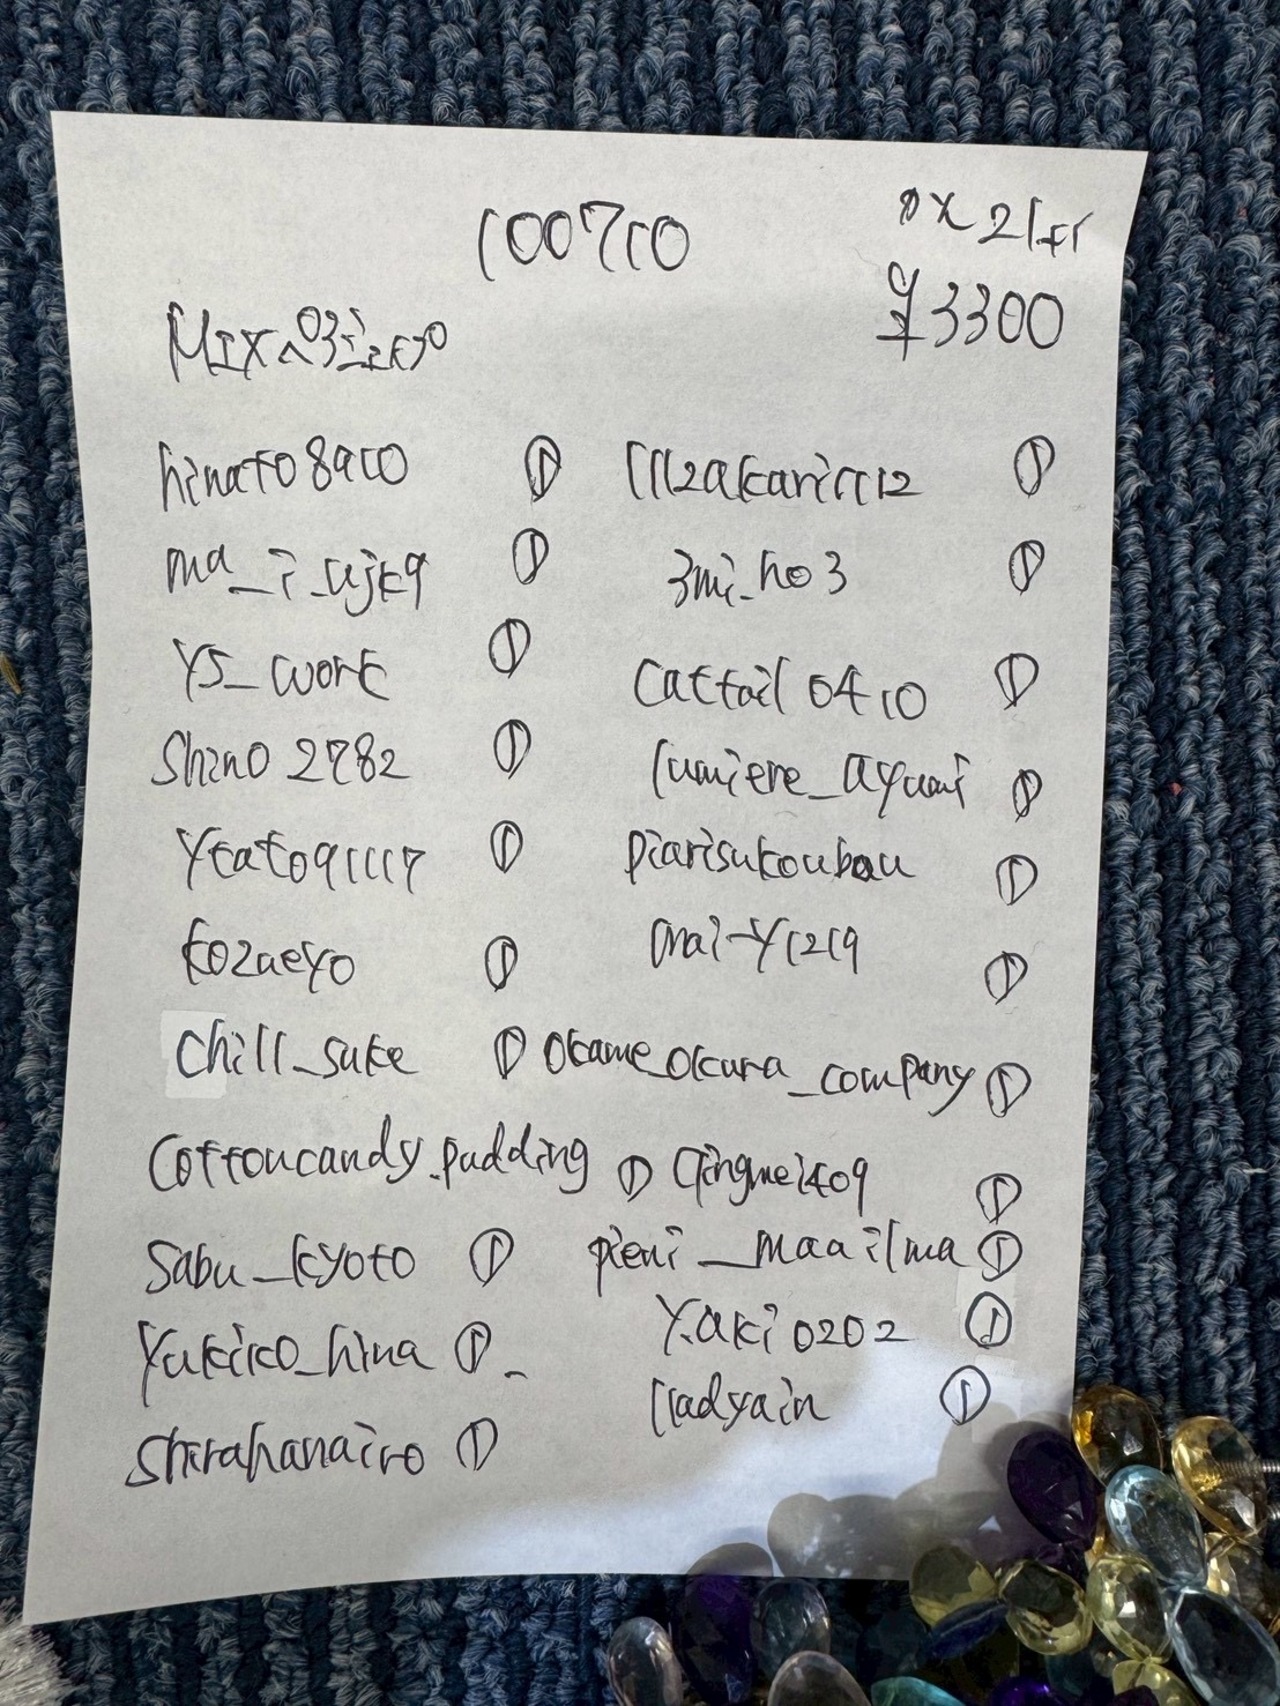 100710
¥3300
hinato8910 ①
ma_i_ujk9 ①
YS_work ①
Shino2782 ①
Ytato91117 ①
kozaeyo ①
chill_suke ①
Cottoncandy.pudding ①
Sabu_kyoto ①
Yukiko_hina ①
Shirahanairo ①
1112akari1112 ①
3mi_ho3 ①
Cattail0410 ①
lumiere_ayumi ①
Piarisukoubou ①
mai-y1219 ①
Okame_okura_company ①
Qingmei409 ①
pieni_maailma ①
Y.aki0202 ①
lladyain ①